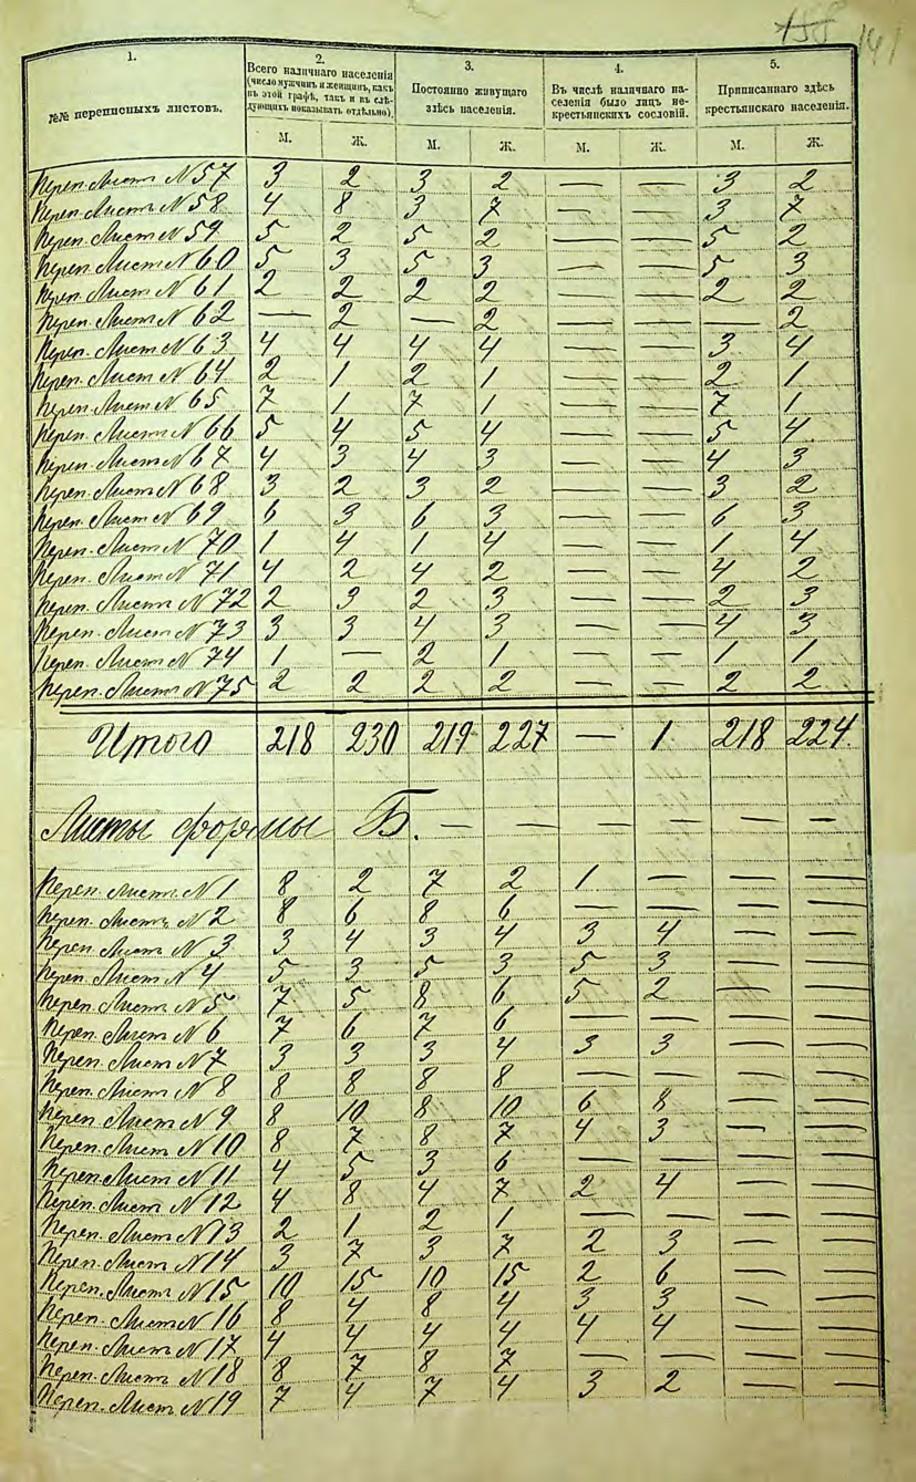 141
1. 2. 3. 4. 5.
№№ переписныхъ листовъ.
Всего наличнаго населенія
(число мужчинъ и женщинъ, какъ
въ этой графѣ, такъ и въ слѣ-
дующихъ показывать отдѣльно).
Постоянно живущаго
здѣсь населенія.
Въ числѣ наличнаго на-
селенія было лицъ не-
крестьянскихъ сословій.
Приписаннаго здѣсь
крестьянскаго населенія.
М. Ж. М. Ж. М. Ж. М. Ж.
Переп. Листъ N 57 3 2 3 2 — — 3 2
Переп. Листъ N 58 4 8 3 7 — — 3 7
Переп. Листъ N 59 5 2 5 2 — — 5 2
Переп. Листъ N 60 5 3 5 3 — — 5 3
Переп. Листъ N 61 2 2 2 2 — — 2 2
Переп. Листъ N 62 — 2 — 2 — — — 2
Переп. Листъ N 63 4 4 4 4 — — 3 4
Переп. Листъ N 64 2 1 2 1 — — 2 1
Переп. Листъ N 65 7 1 7 1 — — 7 1
Переп. Листъ N 66 5 4 5 4 — — 5 4
Переп. Листъ N 67 4 3 4 3 — — 4 3
Переп. Листъ N 68 3 2 3 2 — — 3 2
Переп. Листъ N 69 6 3 6 3 — — 6 3
Переп. Листъ N 70 1 4 1 4 — — 1 4
Переп. Листъ N 71 4 2 4 2 — — 4 2
Переп. Листъ N 72 2 3 2 3 — — 2 3
Переп. Листъ N 73 3 3 4 3 — — 4 3
Переп. Листъ N 74 1 — 2 1 — — 1 1
Переп. Листъ N 75 2 2 2 2 — — 2 2
Итого 218 230 219 227 — 1 218 224.
Листы формы Б. — — — — — —
Переп. Листъ N 1 8 2 7 2 1 — — —
Переп. Листъ N 2 8 6 8 6 — — — —
Переп. Листъ N 3 3 4 3 4 3 4 — —
Переп. Листъ N 4 5 3 5 3 5 3 — —
Переп. Листъ N 5 7 5 8 6 5 2 — —
Переп. Листъ N 6 7 6 7 6 — — — —
Переп. Листъ N 7 3 3 3 4 3 3 — —
Переп. Листъ N 8 8 8 8 8 — — — —
Переп. Листъ N 9 8 10 8 10 6 8 — —
Переп. Листъ N 10 8 7 8 7 4 3 — —
Переп. Листъ N 11 4 5 3 6 — — — —
Переп. Листъ N 12 4 8 4 7 2 4 — —
Переп. Листъ N 13 2 1 2 1 — — — —
Переп. Листъ N 14 3 7 3 7 2 3 — —
Переп. Листъ N 15 10 15 10 15 2 6 — —
Переп. Листъ N 16 8 4 8 4 3 3 — —
Переп. Листъ N 17 4 4 4 4 4 4 — —
Переп. Листъ N 18 8 7 8 7 — — — —
Переп. Листъ N 19 7 4 7 4 3 2 — —